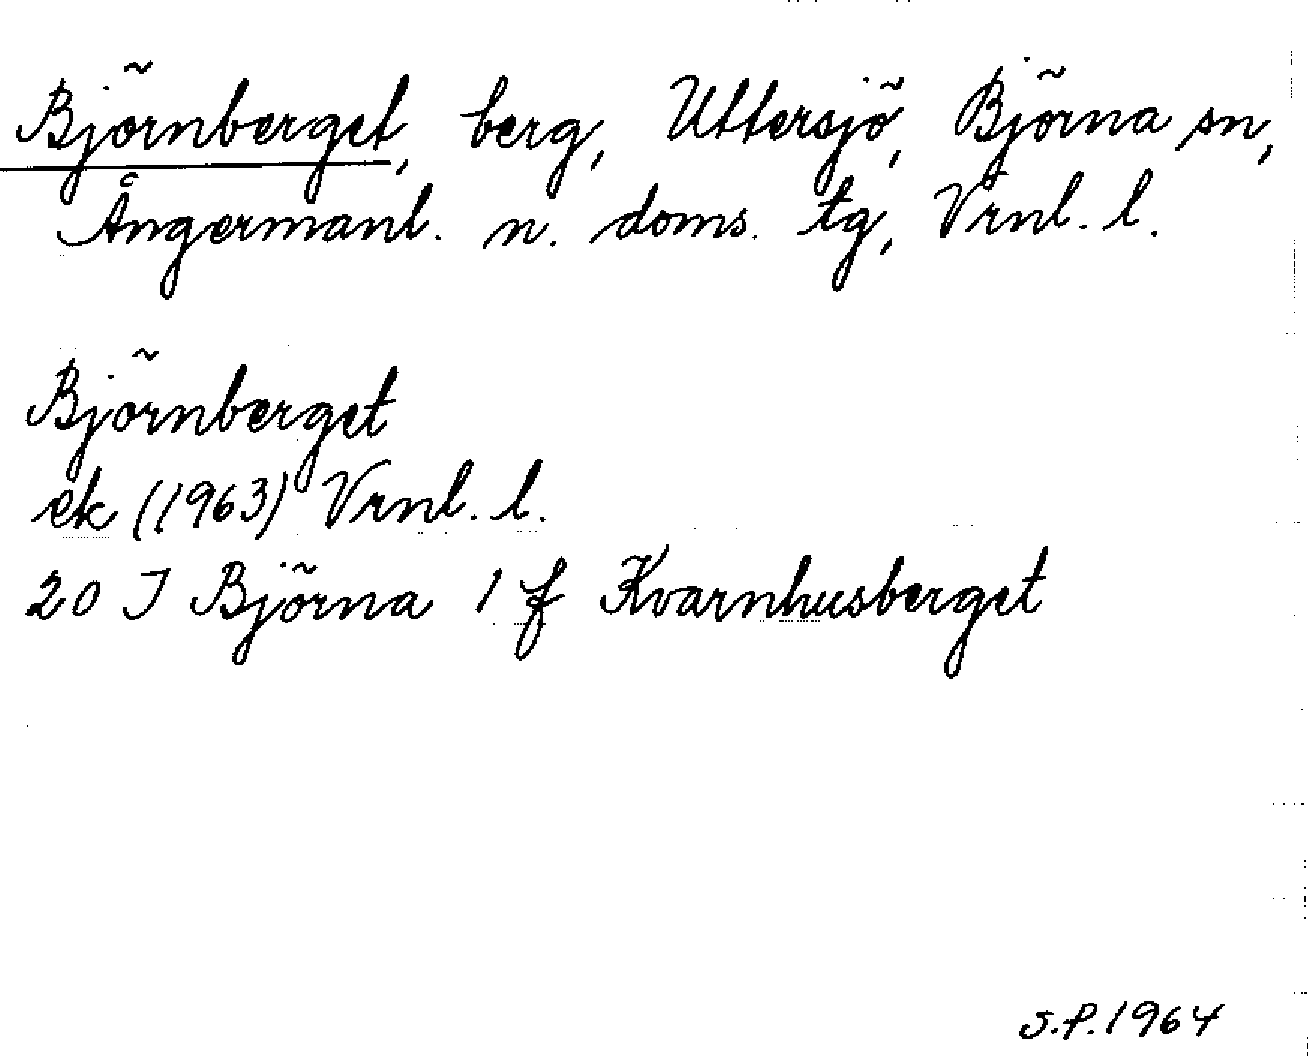 Björnberget, berg, Uttersjö, Björna sn,
Ångermanl. n. doms. tg, Vrnl. l.
Björnberget
ek (1963) Vrnl. l.
20 J Björna 1 f Kvarnhusberget
S.P. 1964